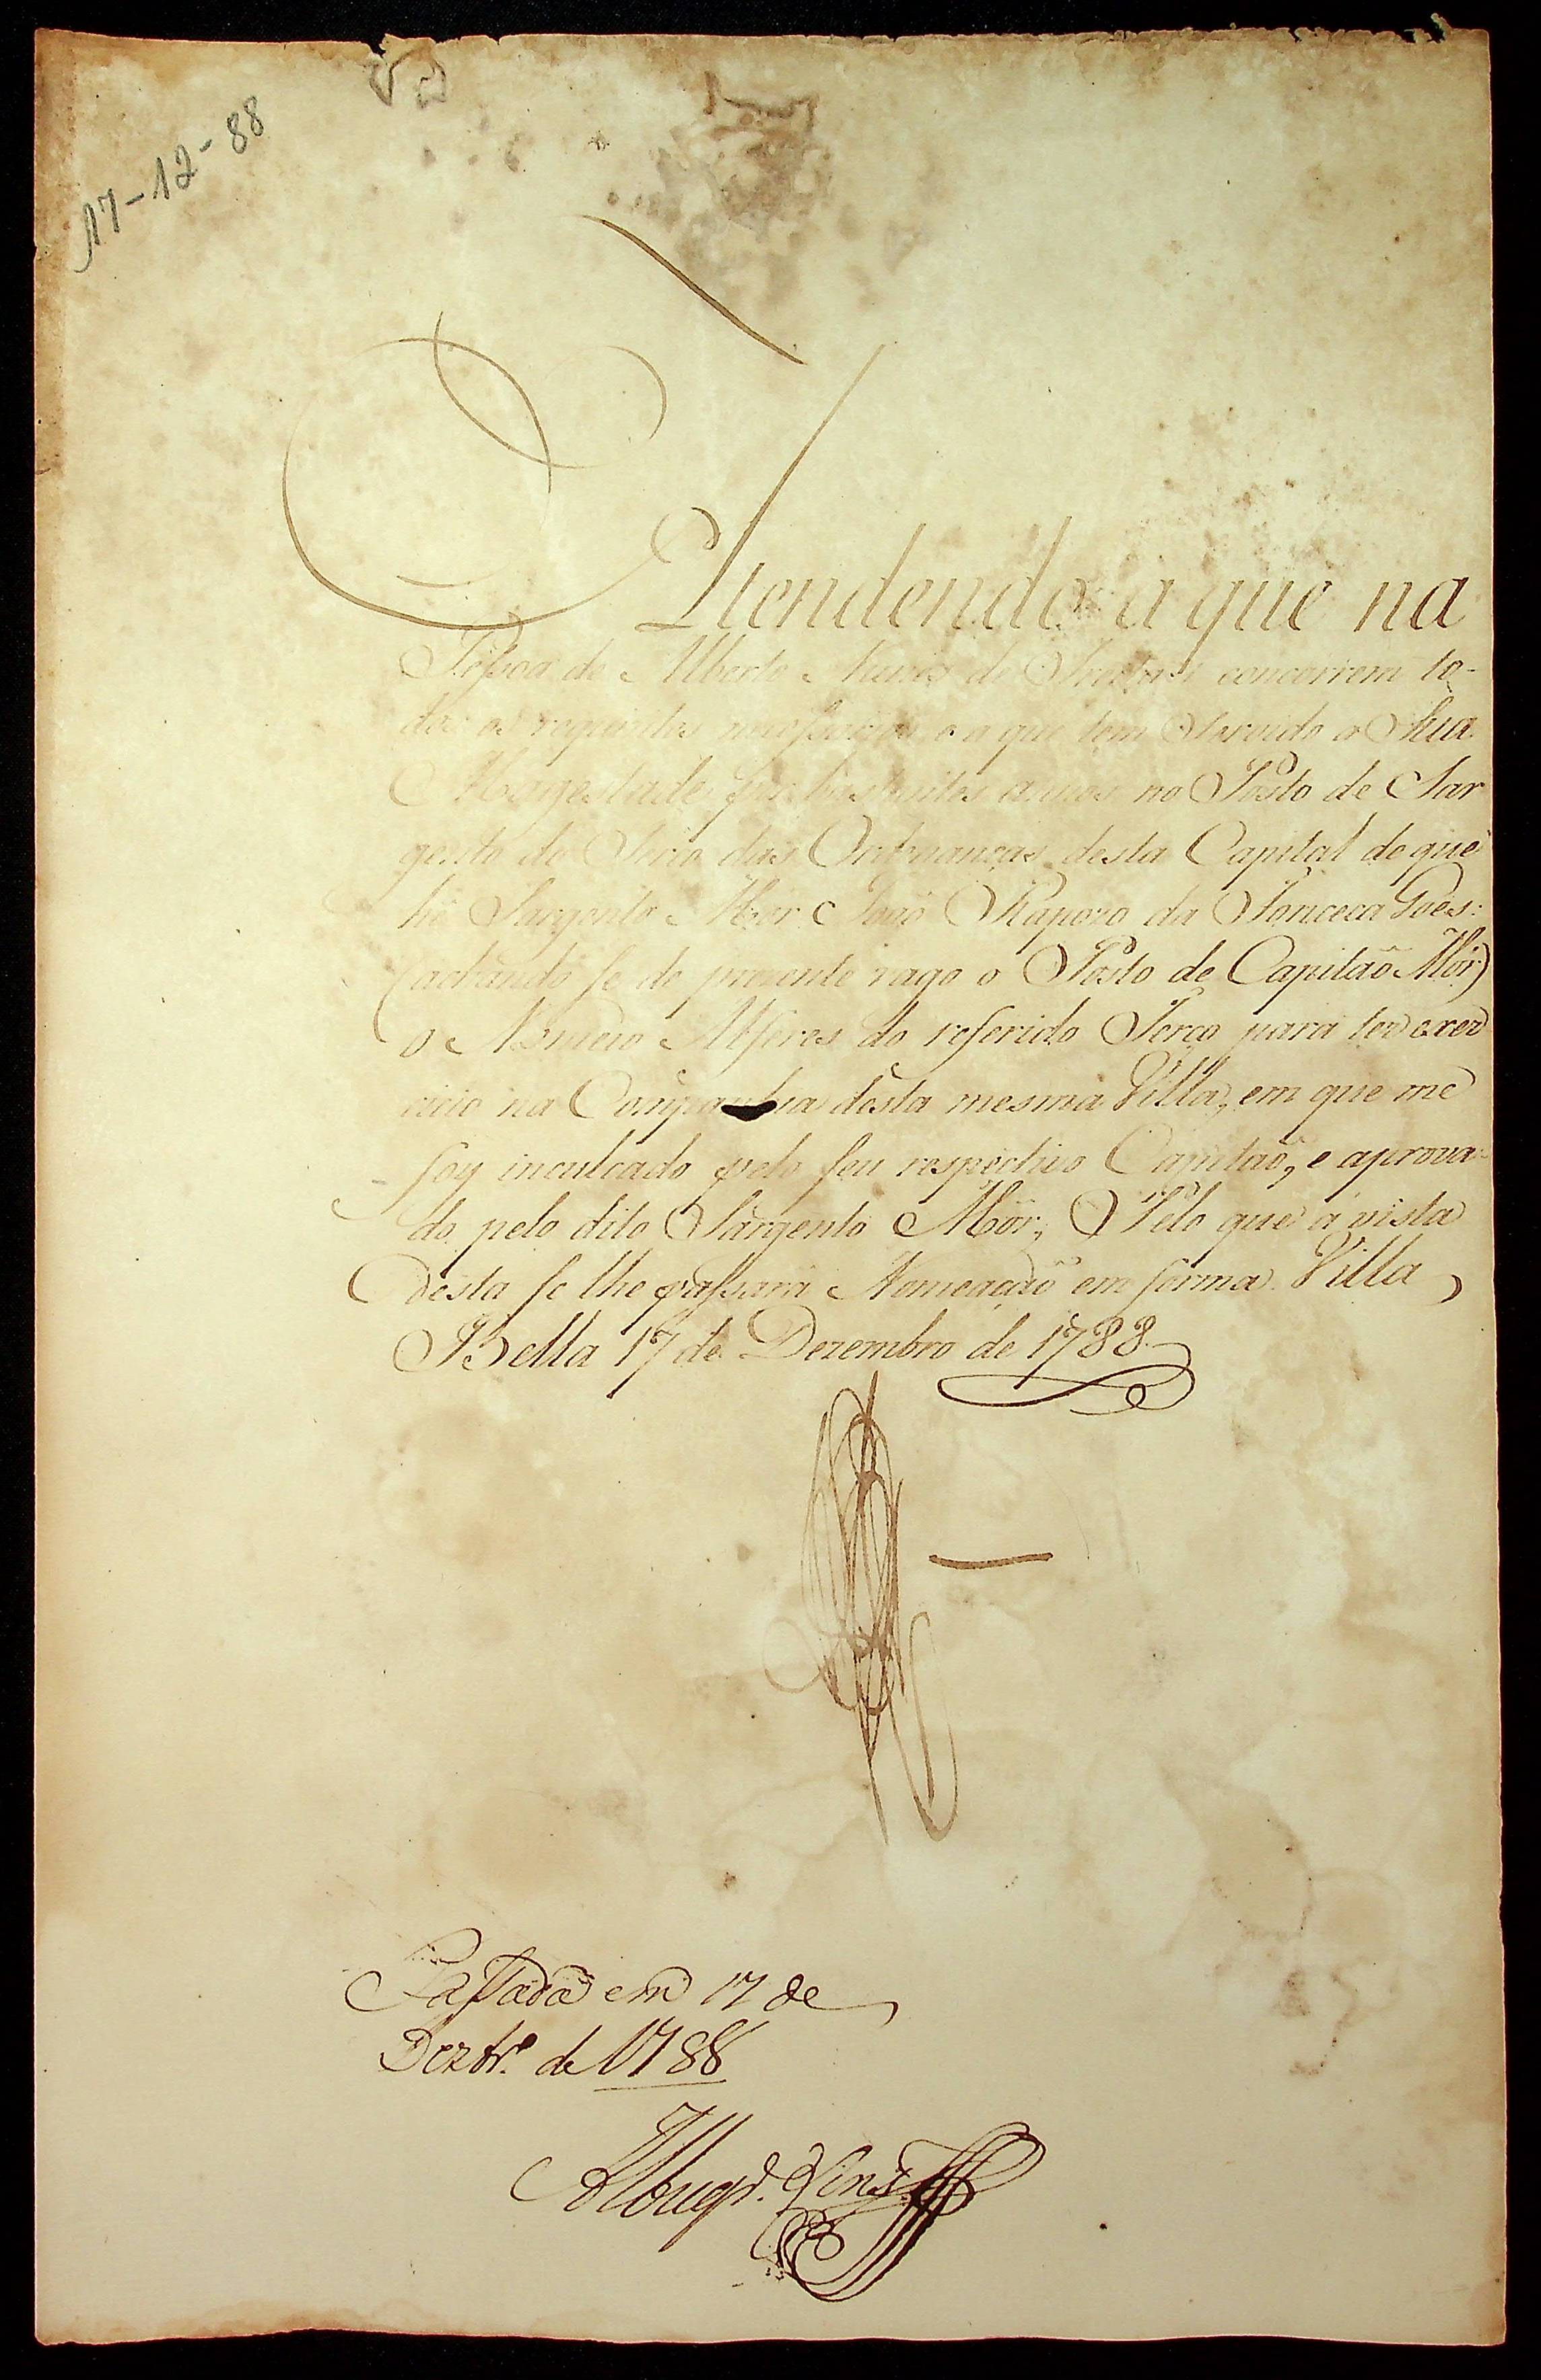 17-12-88
Attendendo a que na
Pessoa de Alberto Nunes de concorrem to-
dos os requisitos necessarios, e a que tem Servido a Sua
Magestade por bastantes annos no Posto de Sar
gento do Terço das Ordenanças desta Capital de que
hé Sargento Mór João Raposo da Fonceca Goes:
(achando se de prezente vago o Posto de Capitaõ Mór)
o Nomeio Alferes do referido Terço para ter exer
cicio na Companhia desta mesma Villa, em que me
foy inculcado pelo seu respectivo Capitaõ, e aprova-
do pelo dito Sargento Mór; Pelo que á vista
desta se lhe passará Nomeaçaõ em forma. Villa
Bella 17 de Dezembro de 1788.
Passada em 17 de
Dezbr.º de 1788